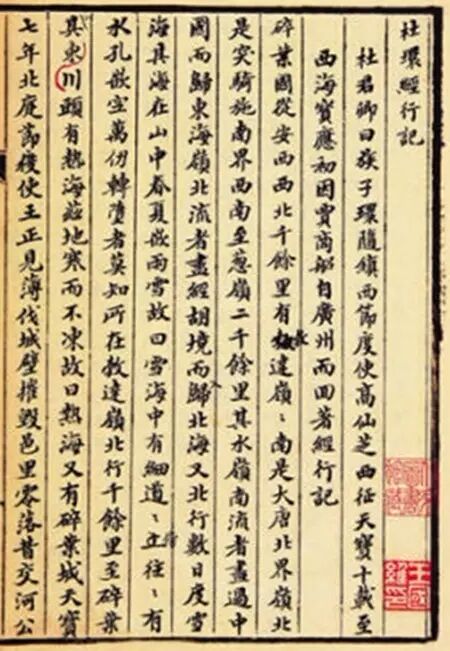 杜環經行記
杜君卿曰族子環隨鎮西節度使高仙芝西征天寶十載至
西海寶應初因賈商船自廣州而回著經行記
碎葉國從安西西北千餘里有達嶺〻南是大唐北界嶺北
是突騎施南界西南至葱嶺二千餘里其水嶺南流者盡過中
國而歸東海嶺北流者盡經胡境而歸北海又北行數日度雪
海其海在山中春夏嵌雨雪故曰雪海中有細道〻立往〻有
水孔嵌空萬仞轉墮者莫知所在達嶺北行千餘里至碎葉
其東川頭有熱海茲地寒而不凍故曰熱海又有碎葉城天寶
七年北庭節度使王正見薄伐城壁摧毀邑里零落昔交河公
王國維印